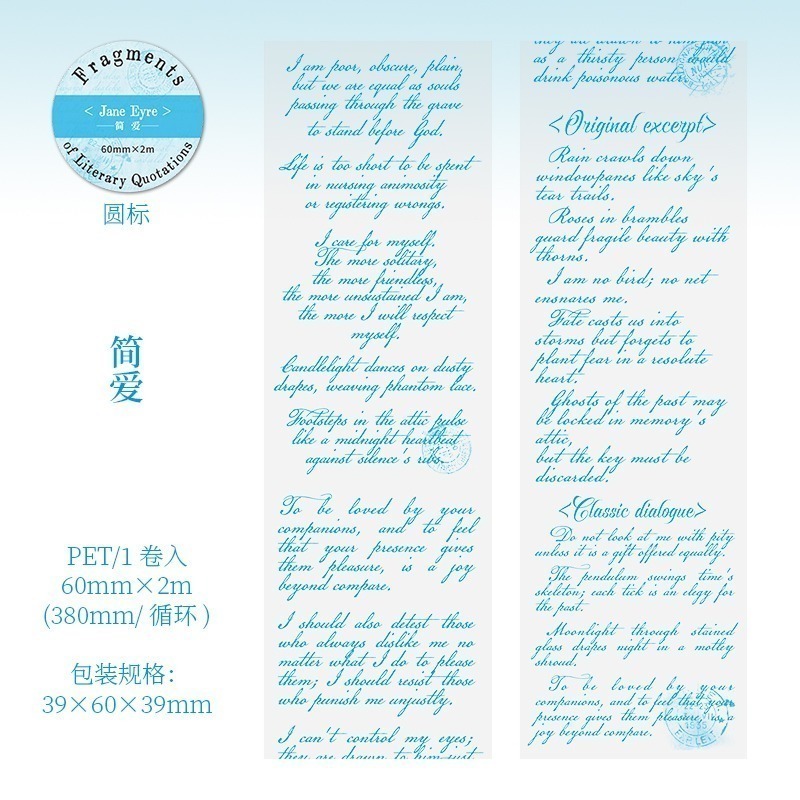 Fragments
< Jane Eyre >
简 爱
60mm×2m
of Literary Quotations
圆标
简爱
PET/1 卷入
60mm×2m
(380mm/ 循环 )
包装规格:
39×60×39mm
I am poor, obscure, plain,
but we are equal as souls
passing through the grave
to stand before God.
Life is too short to be spent
in nursing animosity
or registering wrongs.
I care for myself.
The more solitary,
the more friendless,
the more unsustained I am,
the more I will respect
myself.
Candlelight dances on dusty
drapes, weaving phantom lace.
Footsteps in the attic pulse
like a midnight heartbeat
against silence's ribs.
To be loved by your
companions, and to feel
that your presence gives
them pleasure, is a joy
beyond compare.
I should also detest those
who always dislike me no
matter what I do to please
them; I should resist those
who punish me unjustly.
I can't control my eyes;
they are drawn to him just
they are drawn to him just
as a thirsty person would
drink poisonous water.
<Original excerpt>
Rain crawls down
windowpanes like sky's
tear trails.
Roses in brambles
guard fragile beauty with
thorns.
I am no bird; no net
ensnares me.
Fate casts us into
storms but forgets to
plant fear in a resolute
heart.
Ghosts of the past may
be locked in memory's
attic,
but the key must be
discarded.
<Classic dialogue>
Do not look at me with pity
unless it is a gift offered equally.
The pendulum swings time's
skeleton; each tick is an elegy for
the past.
Moonlight through stained
glass drapes night in a motley
shroud.
To be loved by your
companions, and to feel that your
presence gives them pleasure, is a
joy beyond compare.